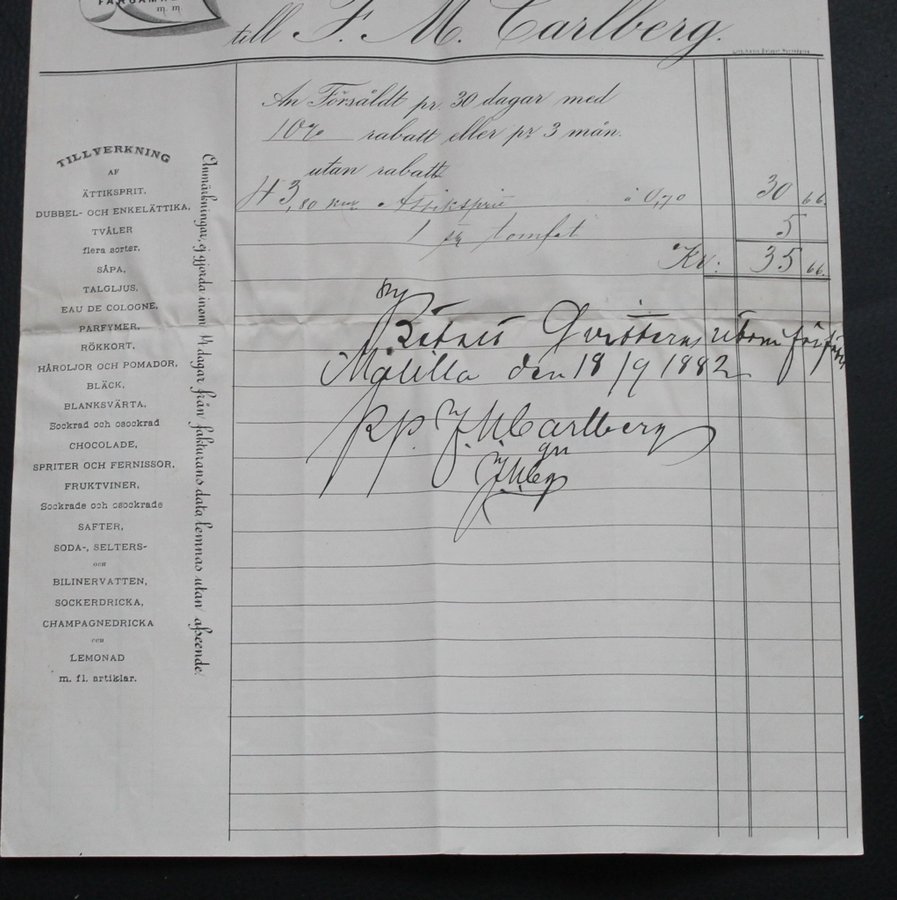 till F. M. Carlberg.
An Försåldt pr 30 dagar med
10% rabatt eller pr 3 mån.
utan rabatt
43,80 à 0,70 30 66
1 5
Kr: 35 66
TILLVERKNING
AF
ÄTTIKSPRIT,
DUBBEL- OCH ENKELÄTTIKA,
TVÅLER
flera sorter,
SÅPA,
TALGLJUS,
EAU DE COLOGNE,
PARFYMER,
RÖKKORT,
HÅROLJOR OCH POMADOR,
BLÄCK,
BLANKSVÄRTA,
Sockrad och osockrad
CHOCOLADE,
SPRITER OCH FERNISSOR,
FRUKTVINER,
Sockrade och osockrade
SAFTER,
SODA-, SELTERS-
OCH
BILINERVATTEN,
SOCKERDRICKA,
CHAMPAGNEDRICKA
OCH
LEMONAD
m. fl. artiklar.
Anmärkningar, ej gjorda inom 14 dagar från fakturans data lemnas utan afseende.
Betalt Qvitteras
Målilla den 18/9 1882
pp. F. M. Carlberg